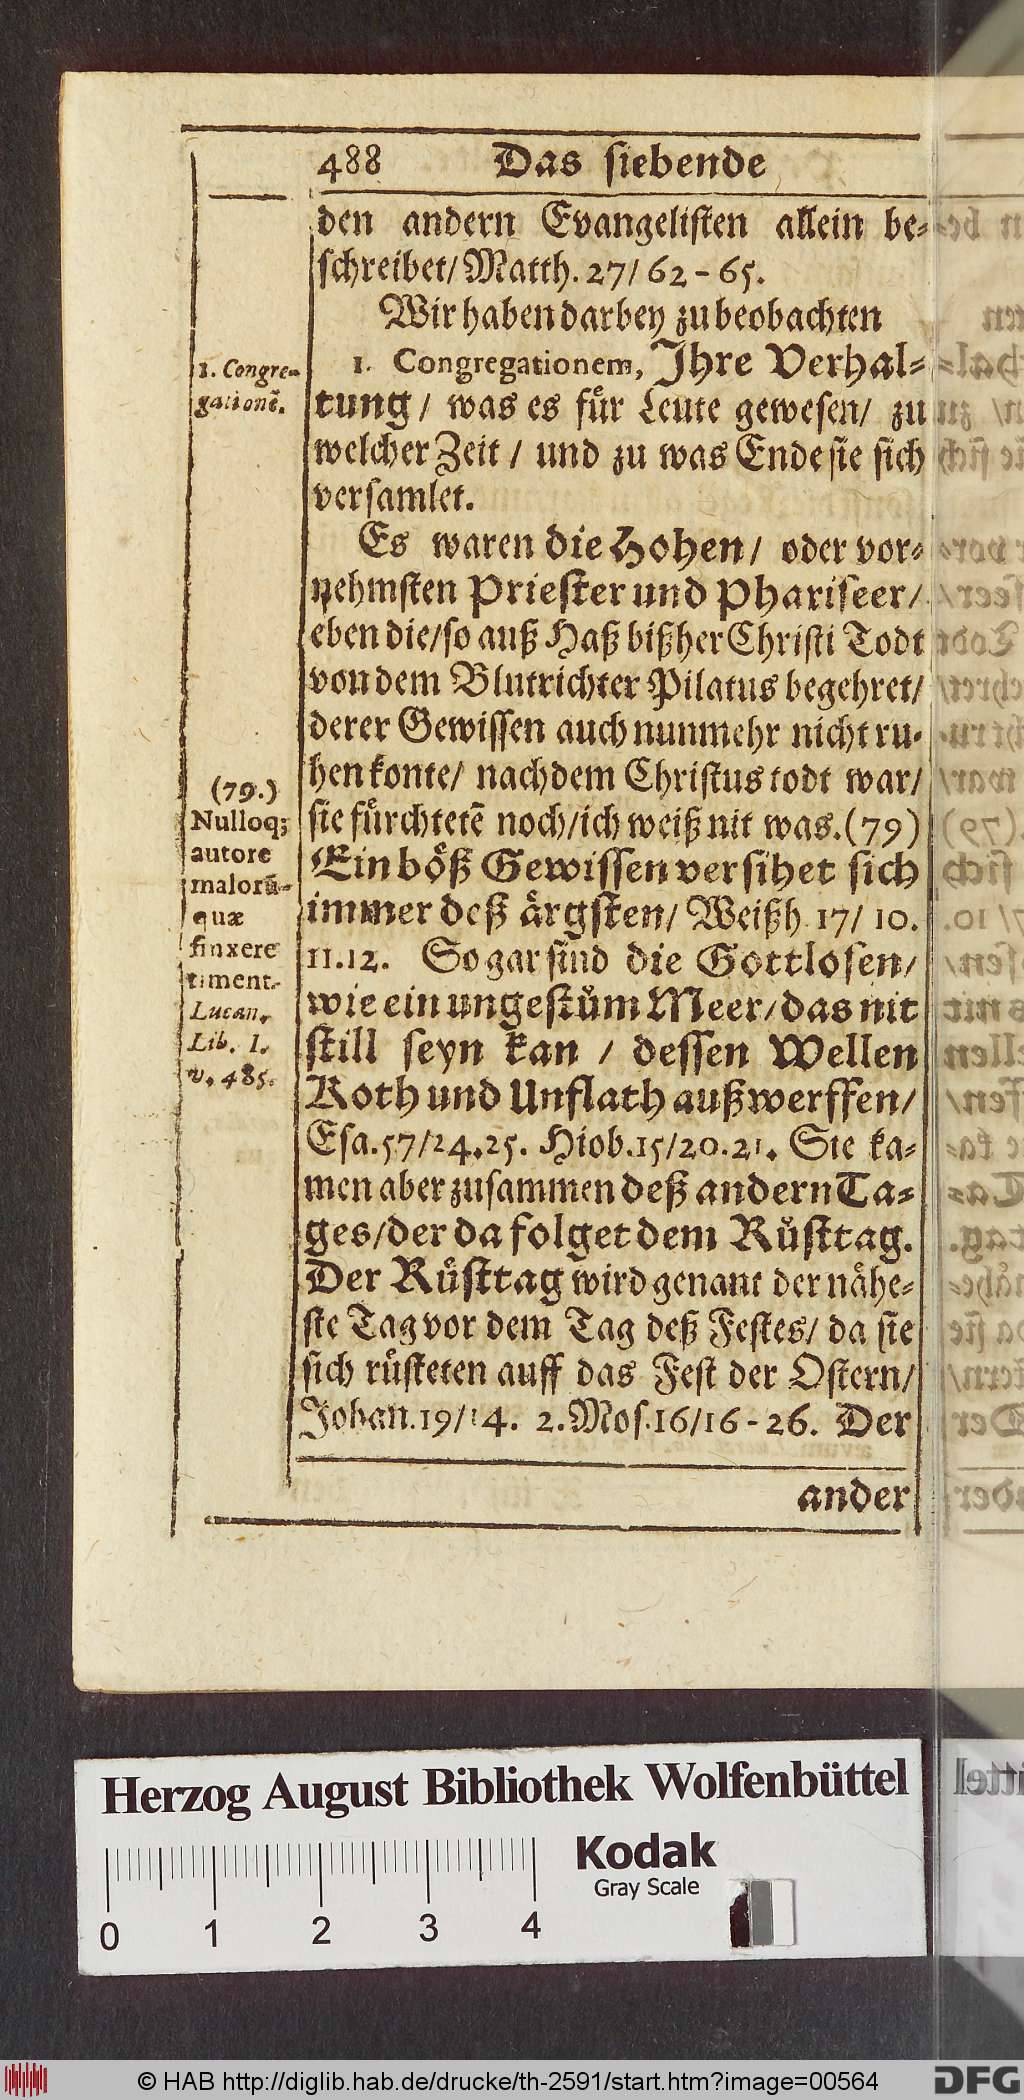 488 Das siebende
den andern Evangelisten allein be-
schreibet/ Matth. 27/ 62 - 65.
Wir haben darbey zu beobachten
1. Congre-
gationē.
1. Congregationem, Ihre Verhal-
tung / was es fuͤr Leute gewesen/ zu
welcher Zeit / und zu was Ende sie sich
versamlet.
Es waren die Hohen/ oder vor-
nehmsten Priester und Phariseer/
eben die/ so auß Haß bißher Christi Todt
von dem Blutrichter Pilatus begehret/
derer Gewissen auch nunmehr nicht ru-
hen konte/ nachdem Christus todt war/
sie fuͤrchtetē noch/ ich weiß nit was. (79)
Ein boͤß Gewissen versihet sich
immer deß aͤrgsten/ Weißh. 17/ 10.
11. 12. So gar sind die Gottlosen/
wie ein ungestuͤm Meer/ das nit
still seyn kan / dessen Wellen
Koth und Unflath außwerffen/
Esa. 57/ 24. 25. Hiob. 15/ 20. 21. Sie ka-
men aber zusammen deß andern Ta-
ges/ der da folget dem Ruͤsttag.
Der Ruͤsttag wird genant der naͤhe-
ste Tag vor dem Tag deß Festes/ da sie
sich ruͤsteten auff das Fest der Ostern/
Johan. 19/ 14. 2. Mos. 16/ 16 - 26. Der
ander
(79.)
Nulloq;
autore
malorū
quæ
finxere
timent.
Lucan.
Lib. 1.
v. 485.
Herzog August Bibliothek Wolfenbüttel
Kodak
Gray Scale
0 1 2 3 4
© HAB http://diglib.hab.de/drucke/th-2591/start.htm?image=00564
DFG